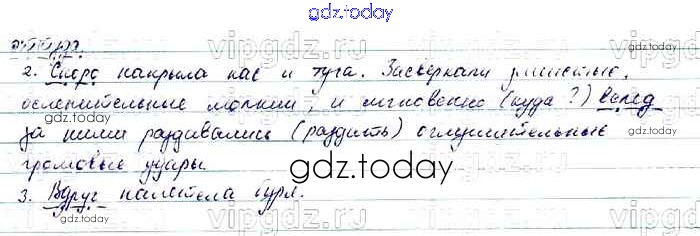 gdz.today
2. Скоро накрыла нас и туча. Засверкали
ослепительные молнии, и мгновенно (куда?) вслед
за ними раздавались (раздать) оглушительные
громовые удары.
gdz.today
3. Вдруг налетела буря.
gdz.today
gdz.today